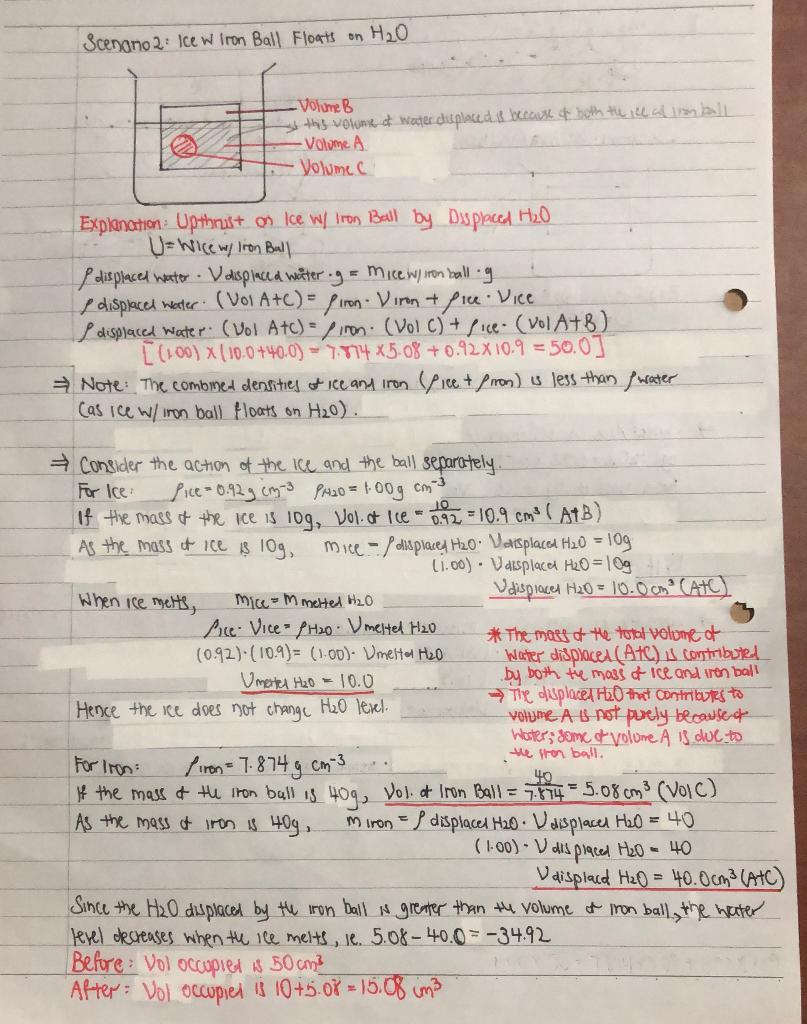 Scenario 2: Ice w Iron Ball Floats on H2O
Volume B
→ this volume of water displaced is because of both the ice and iron ball
Volume A
Volume C
Explanation: Upthrust on Ice w/ Iron Ball by Displaced H2O
U = Wice w/ Iron Ball
ρ displaced water · V displaced water · g = m ice w/ iron ball · g
ρ displaced water · (Vol A+C) = ρ iron · V iron + ρ ice · V ice
ρ displaced water · (Vol A+C) = ρ iron · (Vol C) + ρ ice · (Vol A+B)
[(1.00) × (10.0+40.0) = 7.874 × 5.08 + 0.92 × 10.9 = 50.0]
⇒ Note: The combined densities of ice and iron (ρ ice + ρ iron) is less than ρ water
(as ice w/ iron ball floats on H2O).
⇒ Consider the action of the ice and the ball separately.
For Ice: ρ ice = 0.92 g cm⁻³ ρ H2O = 1.00 g cm⁻³
If the mass of the ice is 10g, Vol. of Ice = 10/0.92 = 10.9 cm³ (A+B)
As the mass of ice is 10g, m ice = ρ displaced H2O · V displaced H2O = 10g
(1.00) · V displaced H2O = 10g
V displaced H2O = 10.0 cm³ (A+C)
When ice melts, m ice = m melted H2O
ρ ice · V ice = ρ H2O · V melted H2O
(0.92) · (10.9) = (1.00) · V melted H2O
V melted H2O = 10.0
Hence the ice does not change H2O level.
* The mass of the total volume of
water displaced (A+C) is contributed
by both the mass of ice and iron ball
→ The displaced H2O that contributes to
volume A is not purely because of
water; some of volume A is due to
the iron ball.
For Iron: ρ iron = 7.874 g cm⁻³
If the mass of the iron ball is 40g, Vol. of Iron Ball = 40/7.874 = 5.08 cm³ (Vol C)
As the mass of iron is 40g, m iron = ρ displaced H2O · V displaced H2O = 40
(1.00) · V displaced H2O = 40
V displaced H2O = 40.0 cm³ (A+C)
Since the H2O displaced by the iron ball is greater than the volume of iron ball, the water
level decreases when the ice melts, ie. 5.08 - 40.0 = -34.92
Before: Vol occupied is 50 cm³
After: Vol occupied is 10 + 5.08 = 15.08 cm³